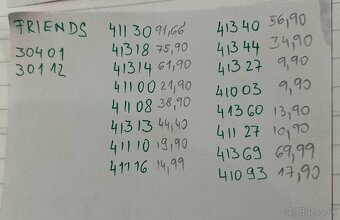 FRIENDS
30401
30112
41130 91,66
41318 75,90
41314 61,90
41100 21,90
41108 38,90
41313 44,40
41110 19,90
41116 14,99
41340 56,90
41344 34,90
41327 9,90
41003 9,90
41360 13,90
41127 10,90
41369 69,99
41093 17,90